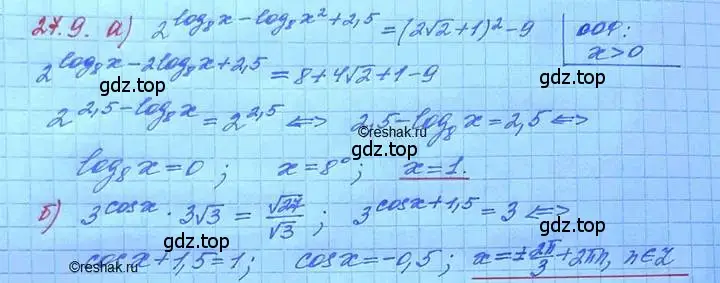 27.9. а) 2^{log₈x - log₈x² + 2,5} = (2√2 + 1)² - 9 | ООУ: x > 0
2^{log₈x - 2log₈x + 2,5} = 8 + 4√2 + 1 - 9
gdz.top
gdz.top
2^{2,5 - log₈x} = 2^{2,5} ⟺ 2,5 - log₈x = 2,5 ⟺
©reshak.ru
gdz.top
log₈x = 0; x = 8⁰; x = 1.
б) 3^{cosx} · 3√3 = √27/√3; 3^{cosx + 1,5} = 3 ⟺
©reshak.ru
gdz.top
gdz.top
cosx + 1,5 = 1; cosx = -0,5; x = ±2π/3 + 2πn, n∈Z
©reshak.ru